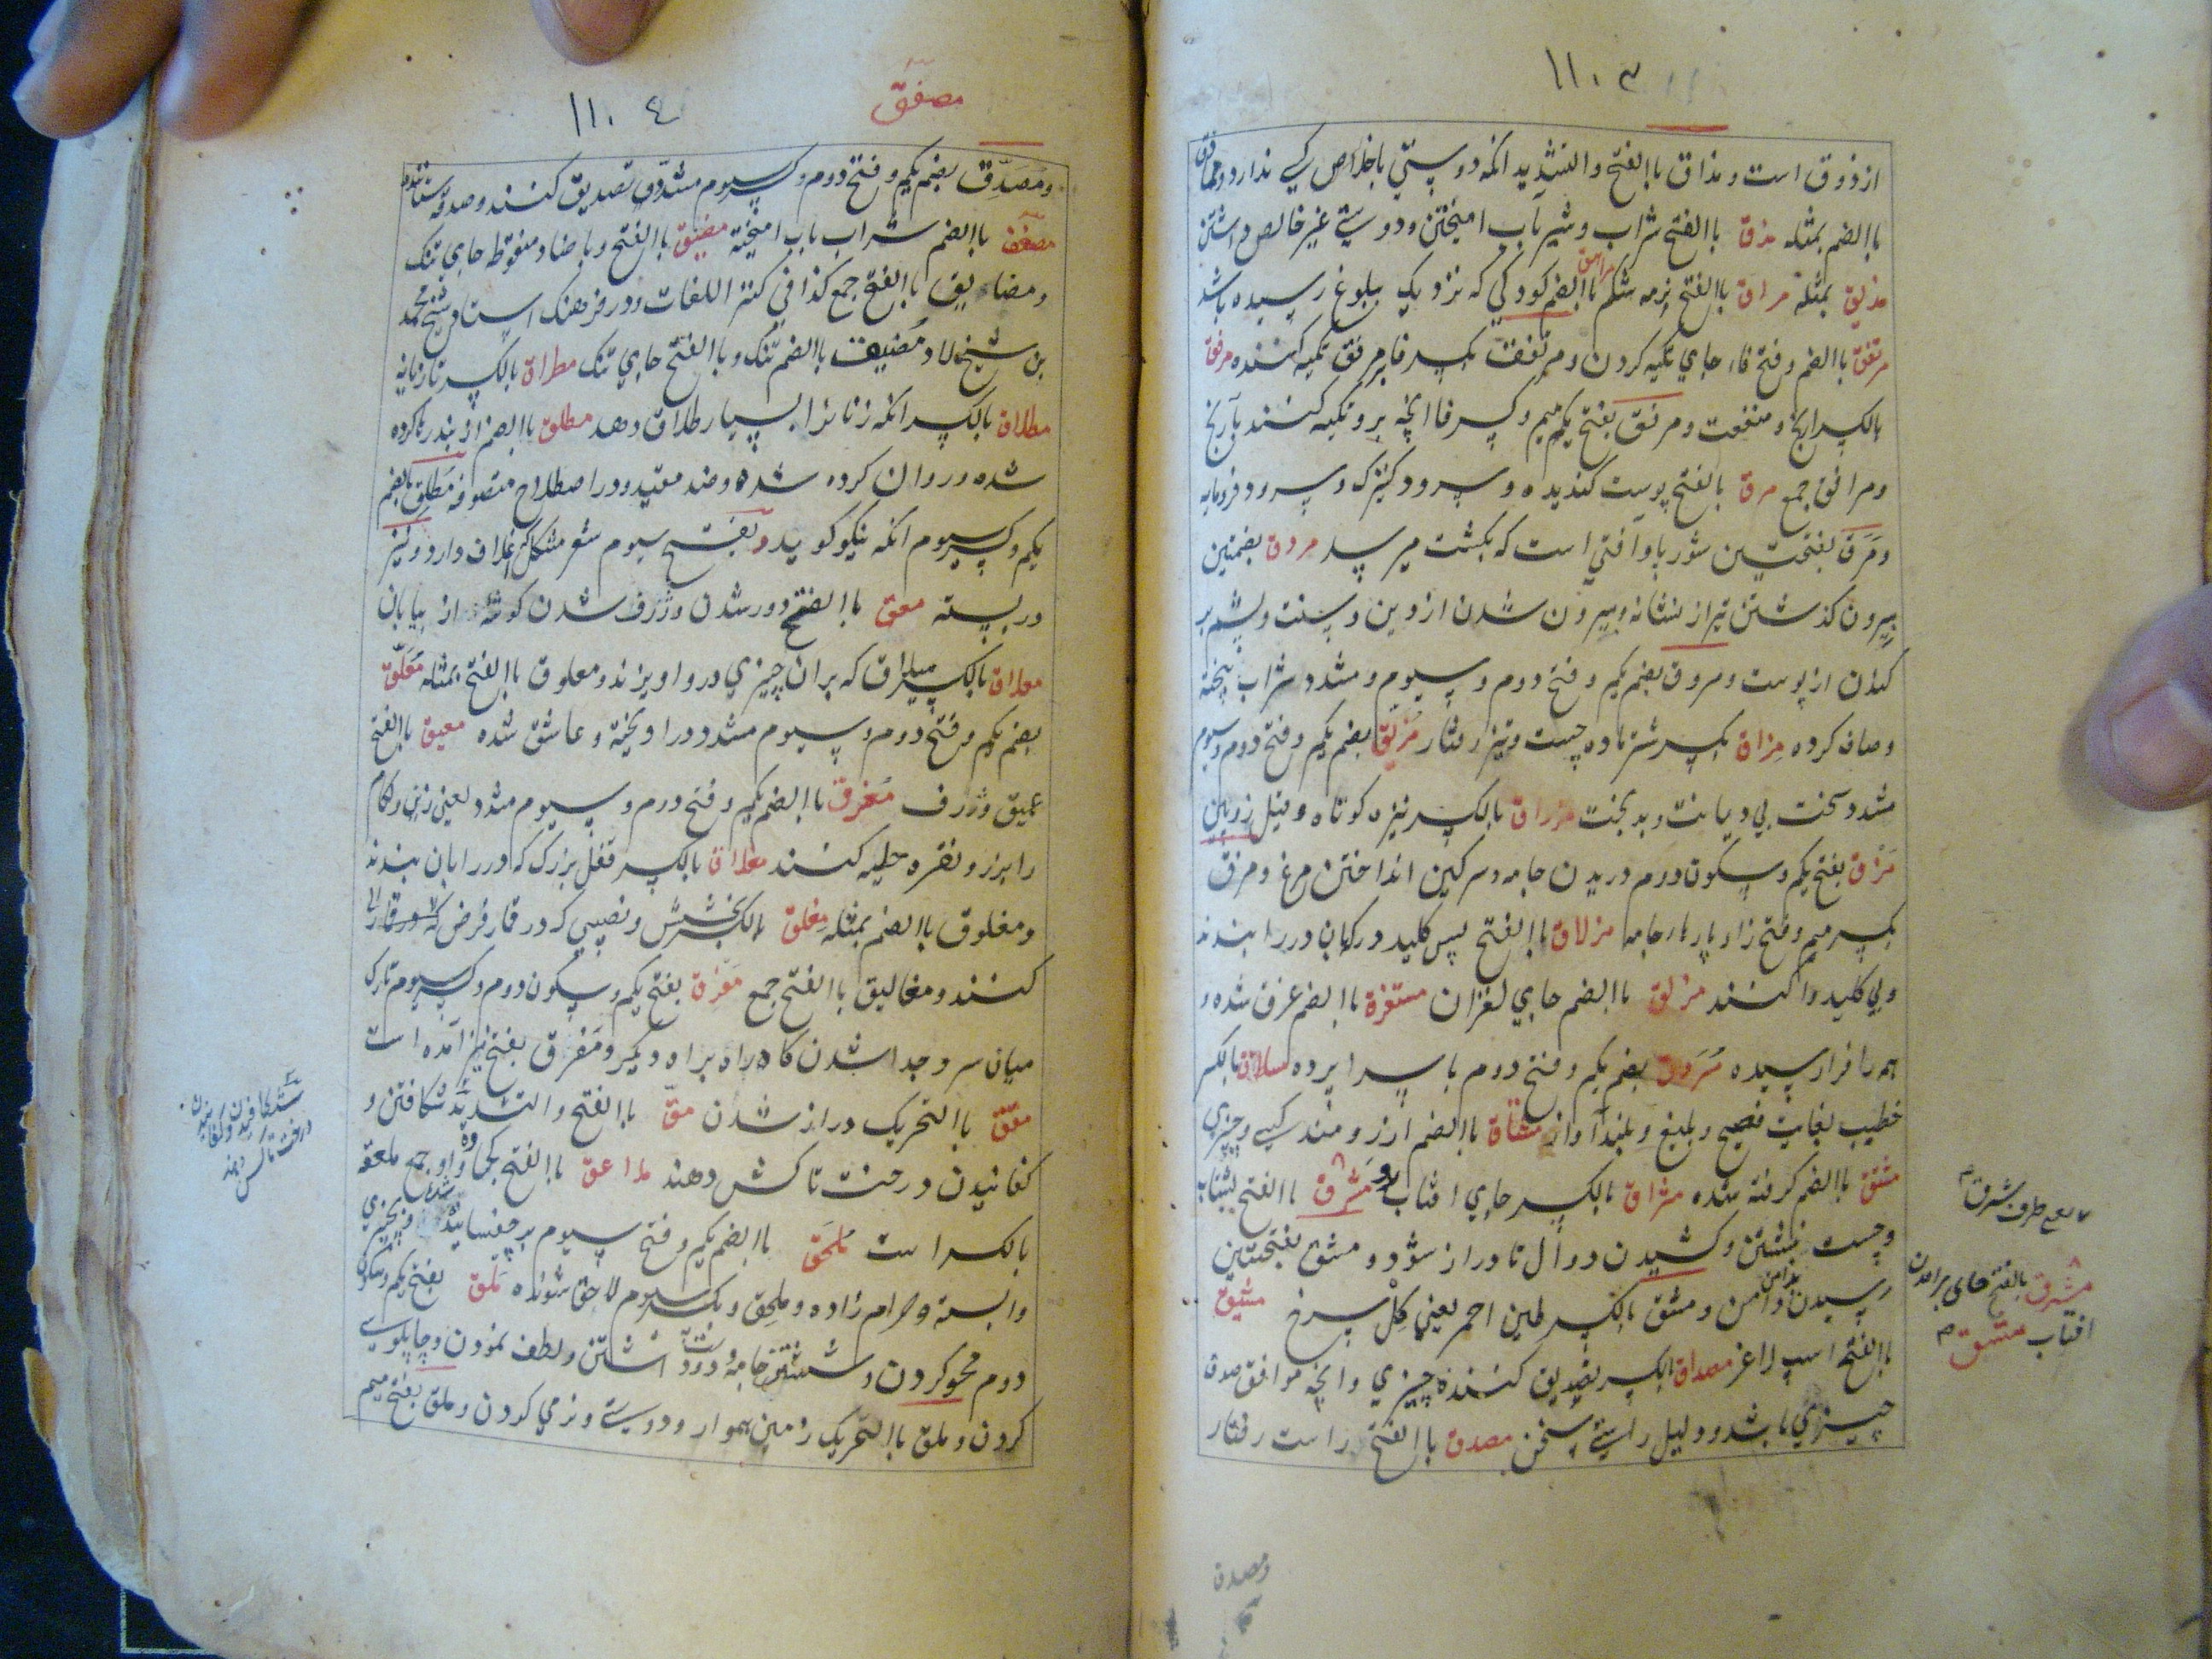 ١١٠٣
از ذوق است و مذاق باالفتح والتشدید انکه دوستی باخلاص کسے ندارد
باالضم بمثله مذق باالفتح شراب و شیر باب امیختن و دوستے غیر خالص داشتن
مذیق بمثله مراق باالفتح نرمه شکم مراهق باالضم کودکی که نزدیک ببلوغ رسیده باشد
مرتفق باالضم و فتح فاء جای تکیه کردن و مرتفق بکسر فا بر مرفق تکیه کننده مرفق
بالکسر ارنج و منفعت و مرفق بفتح یکم میم و کسر فا انچه برو تکیه کنند یا رنج
و مرافق جمع مرق باالفتح پوست کندیده و سرود کنیزک و سرود فرومایه
و مَرَق بفتحتین شوربا و آفتی است که بکشت میرسد مروق بضمتین
بیرون کذشتن تیر از نشانه و بیرون شدن از دین و سنت و پشم بر
کندن از پوست و مروق بضم یکم و فتح دوم و سیوم و مشدد شراب پخته
و صاف کرده مزاق بکسر شتر ماده چست و تیز رفتار مزیق بضم یکم و فتح دوم و سیوم
مشدد سخت بی دیانت و بدبخت مزراق بالکسر نیزه کوتاه و نیل زوبین
مَزق بفتح یکم و سکون دوم دریدن جامه و سرکین انداختن مرغ و مزق
بکسر میم و فتح زا پارهاء جامه مزلاق باالفتح پس کلید در که بان در را بندند
و بی کلید وا کنند مزلق باالضم جای لغزان مستغرق باالضم غرق شده و
همه را فرا رسیده مُسَردق بضم یکم و فتح دوم با سراپرده مسلاق بالکسر
خطیب بغایت فصیح و بلیغ و بلند آواز مشتاق باالضم ارزومند کسے و چیزی
مشتق باالضم کرفته شده مشراق بالکسر جای افتاب رو مَشرق باالفتح بشتاب
و چست نبشتن و کشیدن دوال تا دراز شود و مشق بفتحتین
رسیدن دامن و مشق بالکسر طین احمر یعنی کِل سرخ مشیق
باالفتح اسپ لاغر مصداق بالکسر تصدیق کننده چیزی و انچه موافق صدق
چیزی باشد و دلیل راستے سخن مصدق باالفتح راست رفتار
یعنی طرف شرق
مشرق بالفتح جای برامدن
افتاب مشق
ومصدق
١١٠٤
مصفق
و مَصَدِّق بضم یکم و فتح دوم و کسر سیوم مشدّد تصدیق کننده و صدقه ستاننده
مصفق باالضم شراب باب امیخته مضیق باالفتح و با ضاد منقوطه جای تنک
و مضایق باالفتح جمع کذا فی کنز اللغات و در فرهنک استاد شیخ محمد
بن شیخ لاد مَضیق باالضم تنک و باالفتح جای تنک مطراق بالکسر تازیانه
مطلاق بالکسر انکه زنانرا بسیار طلاق دهد مطلق باالضم از بند رها کرده
شده و روان کرده شده و ضد مقید و در اصطلاح متصوفه مَطلِق بالضم
یکم و کسر سیوم انکه نیکو کوید و بفتح سیوم شعر مشکل که اغلاق دارد و نیز
در بسته معق باالفتح دور شدن و ژرف شدن کوشه از بیابان
معلاق بالکسر که بران چیزی در و اویزند و معلوق باالفتح بمثله مُعَلّق
بضم یکم و فتح دوم و سیوم مشدد در اویخته و عاشق شده معیق باالفتح
عمیق و ژرف مَغرق باالضم یکم و فتح دوم و سیوم مشدد یعنی زین و لکام
را بزر و نقره حلیه کنند مغلاق بالکسر قفل بزرک که در را بان بندند
و مغلوق باالضم بمثله مِغلق بالکسر بخشش و نصیبی که در قمار فرض
کنند و مغالیق باالفتح جمع مَفرق بفتح یکم و سکون دوم و کسر سیوم تارک
میان سر و جدا شدن کاه راه براه دیکر و مفرق بفتح نیز آمده است
مقق باالتحریک دراز شدن مقّ باالفتح والتشدید شکافتن و
کفانیدن درخت تا کش دهند ملاعق باالفتح بجای واو جمع ملعقه
بالکسر است ملحَق باالضم یکم و فتح سیوم بر چفسانیده شده و بچیزی
وابسته و حرام زاده و ملحِق و بکسر سیوم لاحق شونده مَلق بفتح یکم و سکون
دوم محو کردن و شستن جامه و دوست داشتن و لطف نمودن و چاپلوسے
کردن و ملق باالتحریک زمین هموار و دوستے و نرمی کردن و ملق بفتح میم